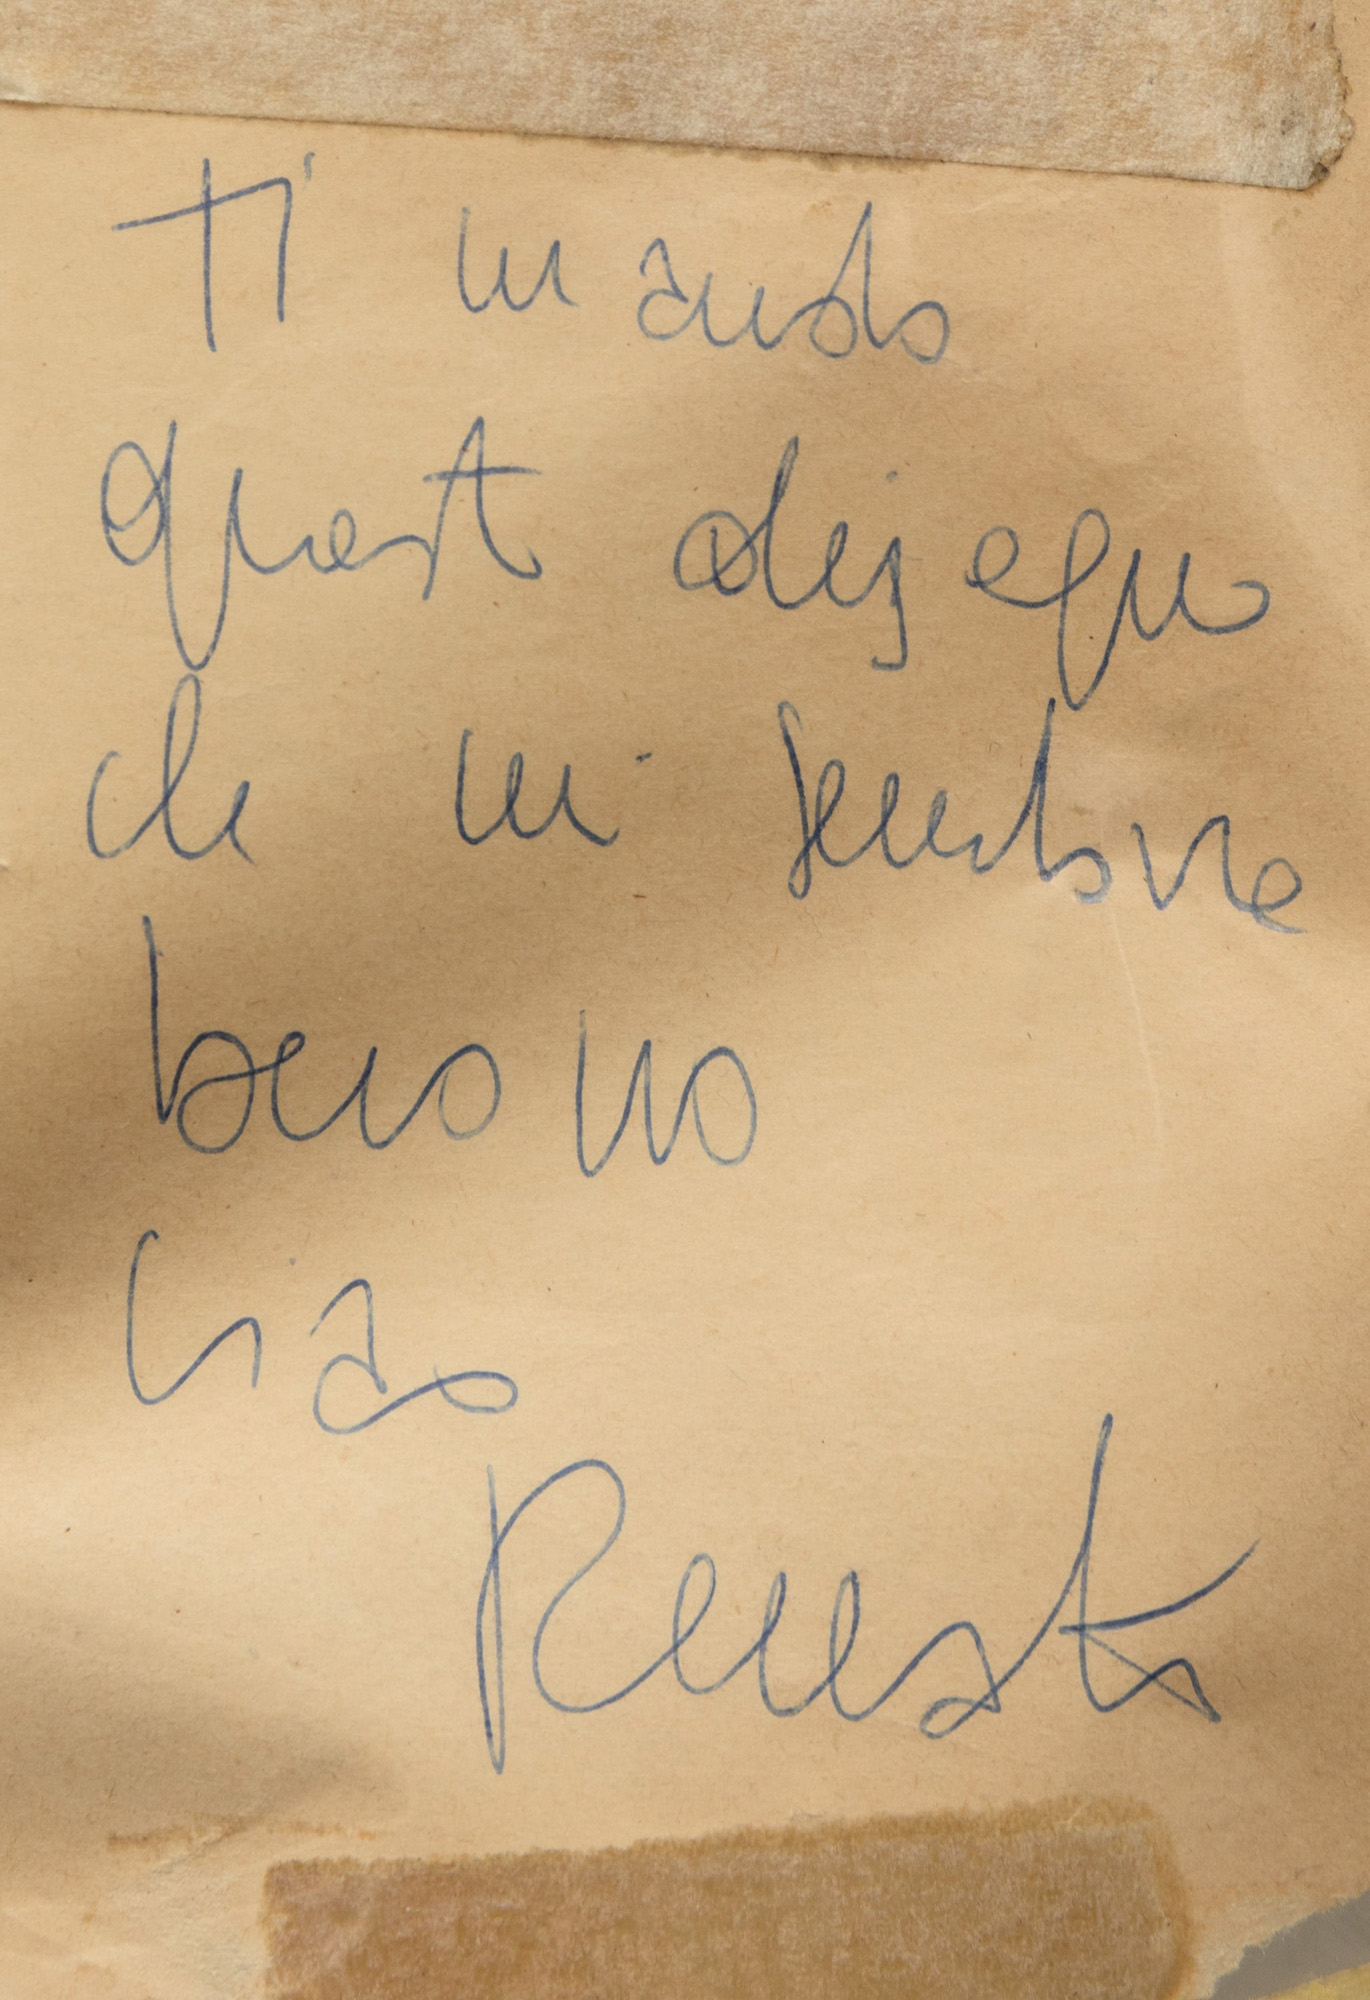 Ti mando
questo disegno
che mi sembra
buono
Ciao